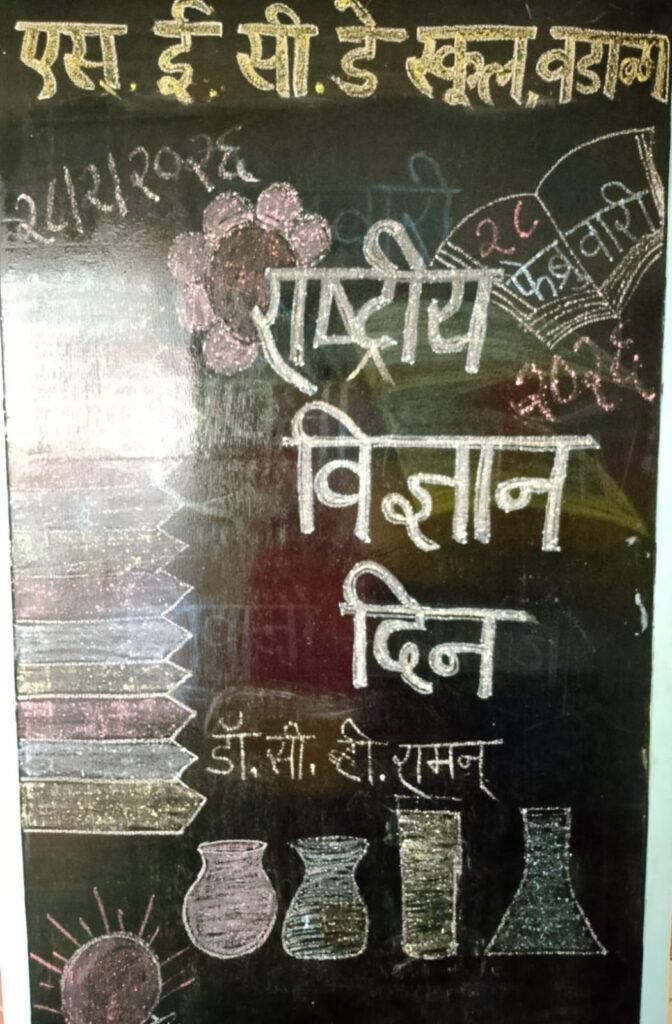 एस.ई.सी.डे स्कूल,वडाळा
२८।२।२०२६
२८
फेब्रुवारी
२०२६
राष्ट्रीय
विज्ञान
दिन
डॉ. सी. व्ही. रामन्